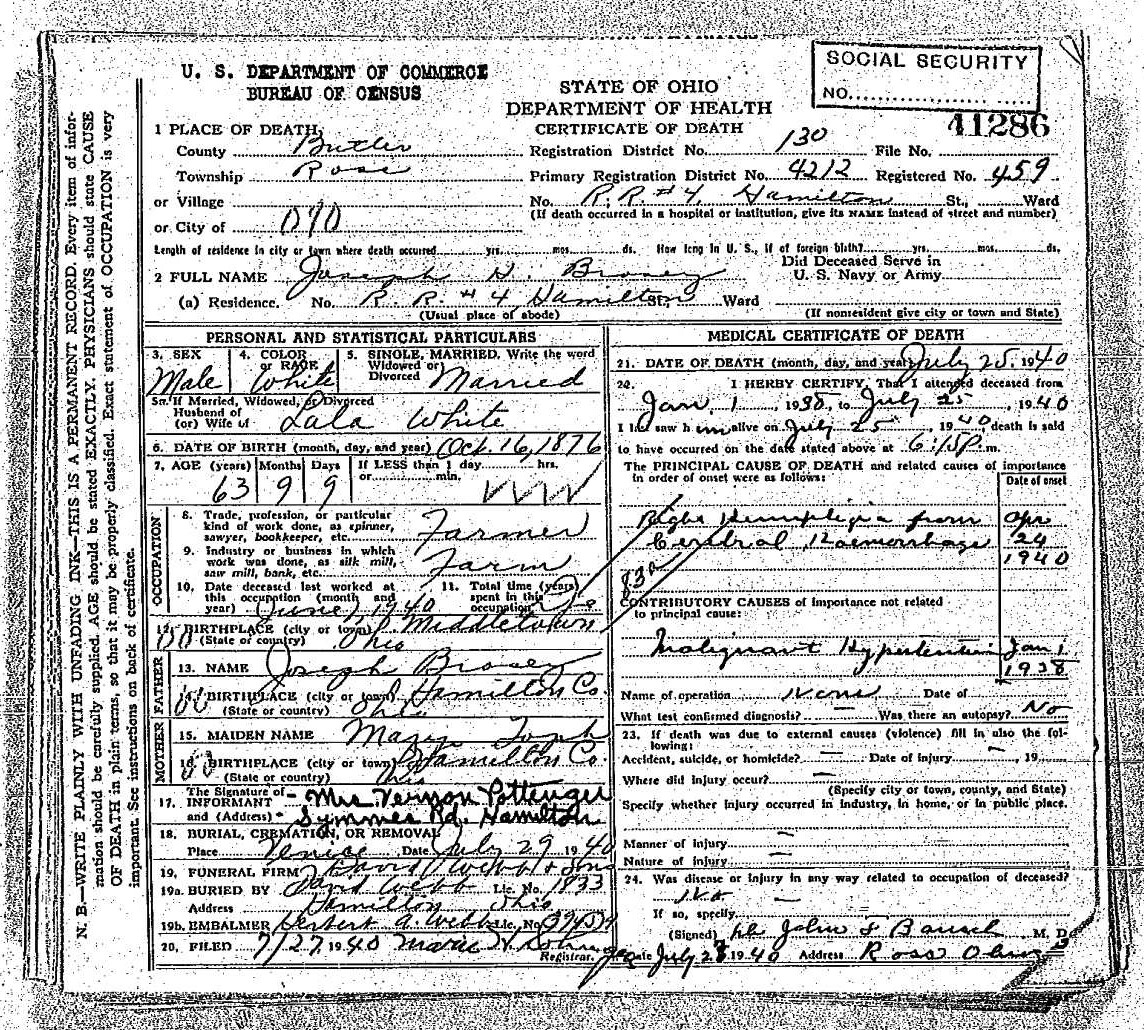 U. S. DEPARTMENT OF COMMERCE
BUREAU OF CENSUS
STATE OF OHIO
DEPARTMENT OF HEALTH
CERTIFICATE OF DEATH
SOCIAL SECURITY
NO.
41286
N. B.—WRITE PLAINLY WITH UNFADING INK—THIS IS A PERMANENT RECORD. Every item of infor-
mation should be carefully supplied. AGE should be stated EXACTLY. PHYSICIANS should state CAUSE
OF DEATH in plain terms, so that it may be properly classified. Exact statement of OCCUPATION is very
important. See instructions on back of certificate.
1 PLACE OF DEATH,
County Butler
Registration District No. 130 File No.
Township Ross
Primary Registration District No. 4212 Registered No. 459
or Village
No. R. R. #4 Hamilton St., Ward
(If death occurred in a hospital or institution, give its NAME instead of street and number)
or City of
Length of residence in city or town where death occurred yrs. mos. ds. How long in U. S., if of foreign birth? yrs. mos. ds.
2 FULL NAME Joseph H. Brosey
Did Deceased Serve in
U. S. Navy or Army
(a) Residence. No. R. R. # 4 Hamilton St. Ward
(Usual place of abode) (If nonresident give city or town and State)
PERSONAL AND STATISTICAL PARTICULARS
3. SEX
Male
4. COLOR
or RACE
White
5. SINGLE, MARRIED, Write the word
Widowed or
Divorced Married
5a. If Married, Widowed, or Divorced
Husband of
(or) Wife of Lala White
6. DATE OF BIRTH (month, day, and year) Oct. 16, 1876
7. AGE (years) Months Days If LESS than 1 day hrs.
or min.
63 9 9
OCCUPATION
8. Trade, profession, or particular
kind of work done, as spinner,
sawyer, bookkeeper, etc. Farmer
9. Industry or business in which
work was done, as silk mill,
saw mill, bank, etc. Farm
10. Date deceased last worked at
this occupation (month and
year) June, 1940
11. Total time (years)
spent in this
occupation
12. BIRTHPLACE (city or town) Middletown
(State or country) Ohio
FATHER
13. NAME Joseph Brosey
14. BIRTHPLACE (city or town) Hamilton Co.
(State or country) Ohio
MOTHER
15. MAIDEN NAME Mary
16. BIRTHPLACE (city or town) Hamilton Co.
(State or country) Ohio
17. The Signature of
INFORMANT - Mrs Vernon Pottenger
and (Address) - Symmes Rd. Hamilton
18. BURIAL, CREMATION, OR REMOVAL
Place Venice Date July 29 1940
19. FUNERAL FIRM David Webb & Sons
19a. BURIED BY David Webb Lic. No. 1833
Address Hamilton Ohio
19b. EMBALMER Herbert A. Webb Lic. No.
20. FILED 7/27 1940 Marie
Registrar.
MEDICAL CERTIFICATE OF DEATH
21. DATE OF DEATH (month, day, and year) July 25, 1940
22. I HERBY CERTIFY, That I attended deceased from
Jan. 1, 1938, to July 25, 1940
I last saw him alive on July 25, 1940 death is said
to have occurred on the date stated above at 6:15 P. m.
The PRINCIPAL CAUSE OF DEATH and related causes of importance
in order of onset were as follows:
Date of onset
Right Hemiplegia from Apr
Cerebral Haemorrhage 24
1940
83a
CONTRIBUTORY CAUSES of importance not related
to principal cause:
Malignant Hypertension Jan 1
1938
Name of operation None Date of
What test confirmed diagnosis? — Was there an autopsy? No
23. If death was due to external causes (violence) fill in also the fol-
lowing:
Accident, suicide, or homicide? — Date of injury — , 19
Where did injury occur? —
(Specify city or town, county, and State)
Specify whether injury occurred in industry, in home, or in public place.
Manner of injury —
Nature of injury —
24. Was disease or injury in any way related to occupation of deceased?
No
If so, specify
(Signed) John F Bausch M. D.
Date July 1940 Address Ross Ohio